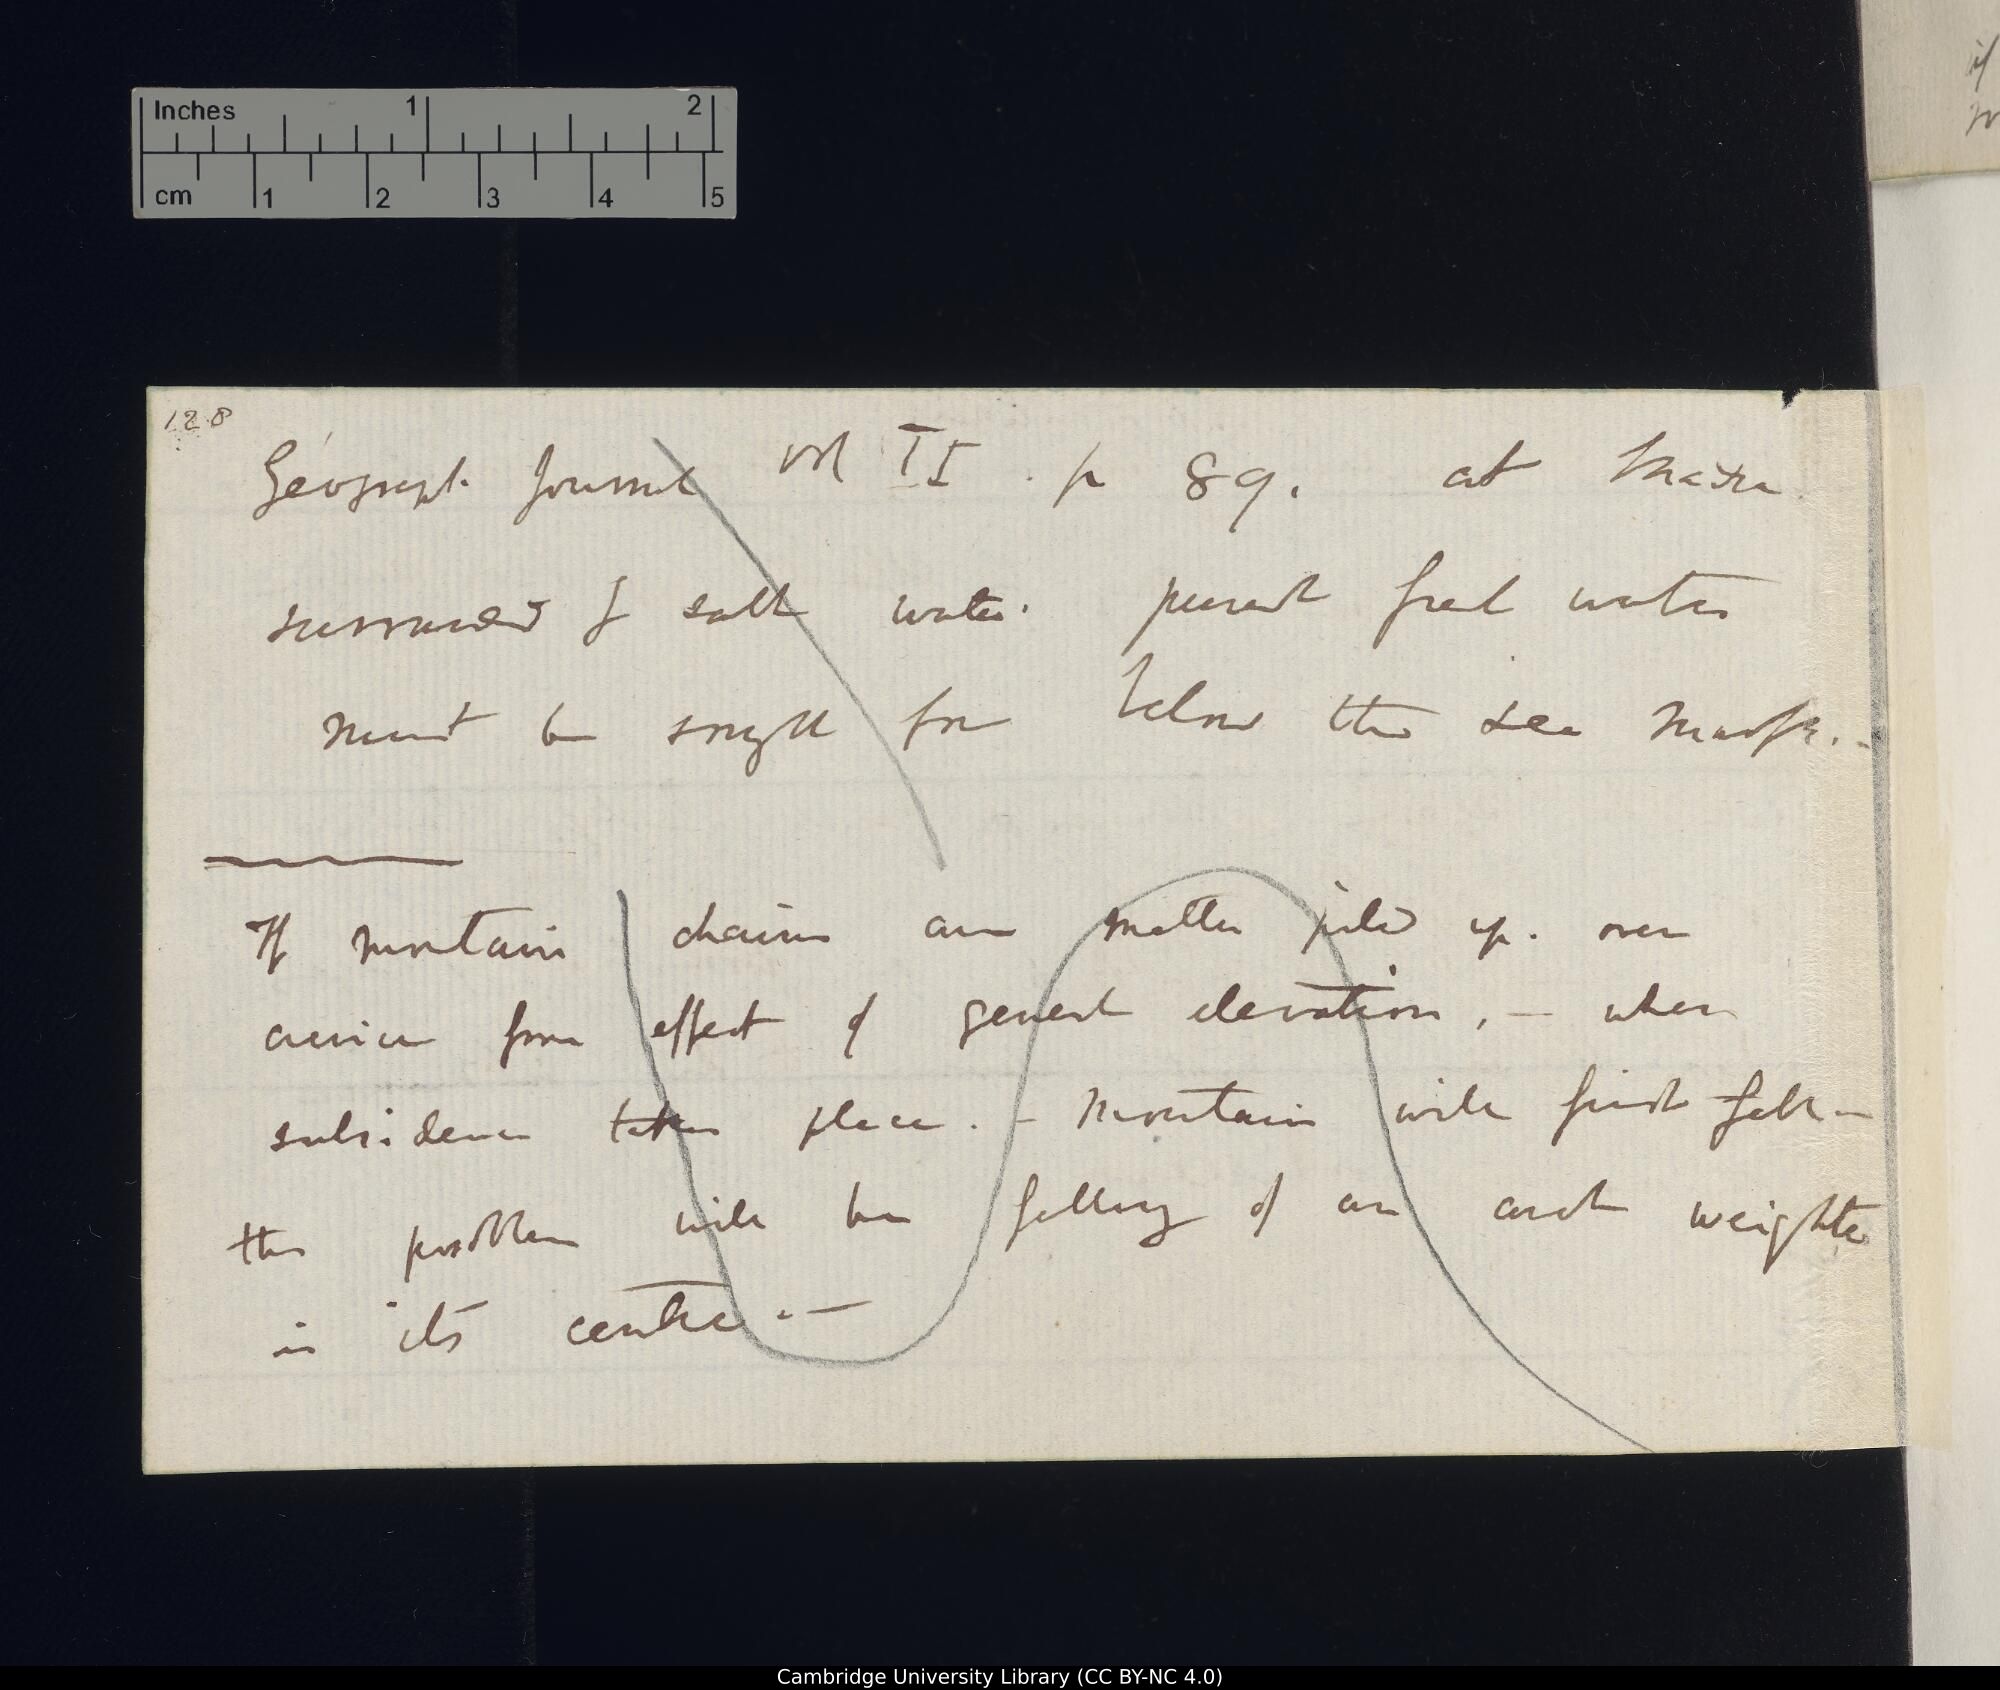 Inches 1 2
cm 1 2 3 4 5
if
128
Geograph. Journal vol II. p 89. at
surrounded by salt water. purest fresh water
must be sought for below the sea mark. -
If mountain chains are matter piled up. over
from effect of general elevation, — when
subsidence takes place. — Mountain will first fall —
the problem will be falling of an arch weighted
in its centre. —
Cambridge University Library (CC BY-NC 4.0)